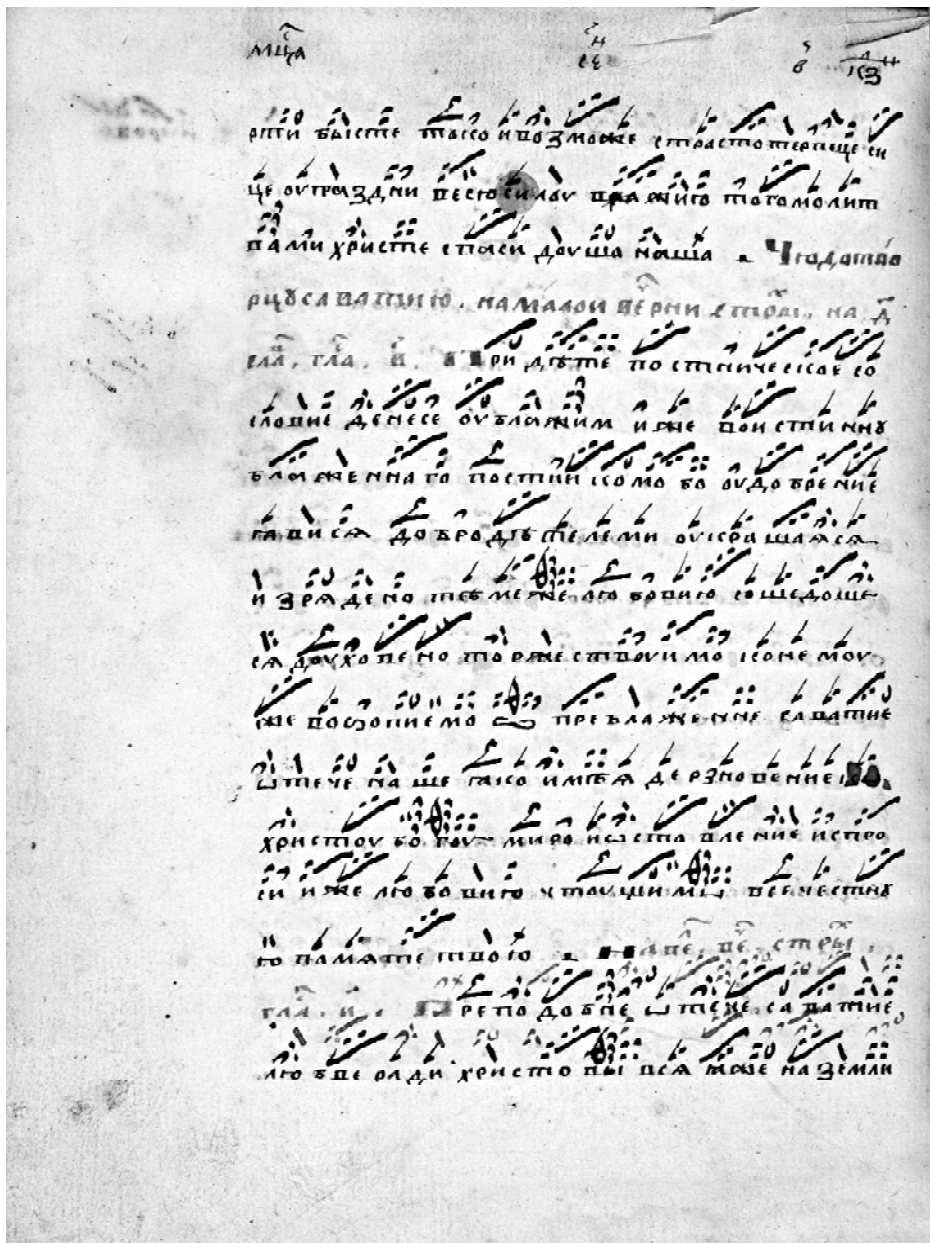 мц҇а се҇н в҃ к҃з
рти бысте тако и возможе страстотерпеце си
це оупраздни весю силоу вражию того молит
вами христе спаси доуша наша . Чюдотво
рцу саватию . на малои вечерни стр҇ы . на д҃
гл҇а . гл҇а . и҃ . Приидѣте постническое со
словие денесе оублажим иже воистинну
блаженнаго постником бо оудобрение
явися добродѣтелеми оукрашаяся
изрядено тѣмеже любовию сошедоше
ся доуховено торжествоуимо ко немоу
же вопиемо преблаженне саватие
ѿтече наше яко имѣя дерзновение ко
христоу богоу миро и ѡставление испро
си иже любовию чтоущимо всечестну
ю памяте твою . на ве҇ . ве҇ . стр҇ы .
гл҇а . и҃ . Преподобне ѿтече саватие
любве ради христовы вся яже на земли